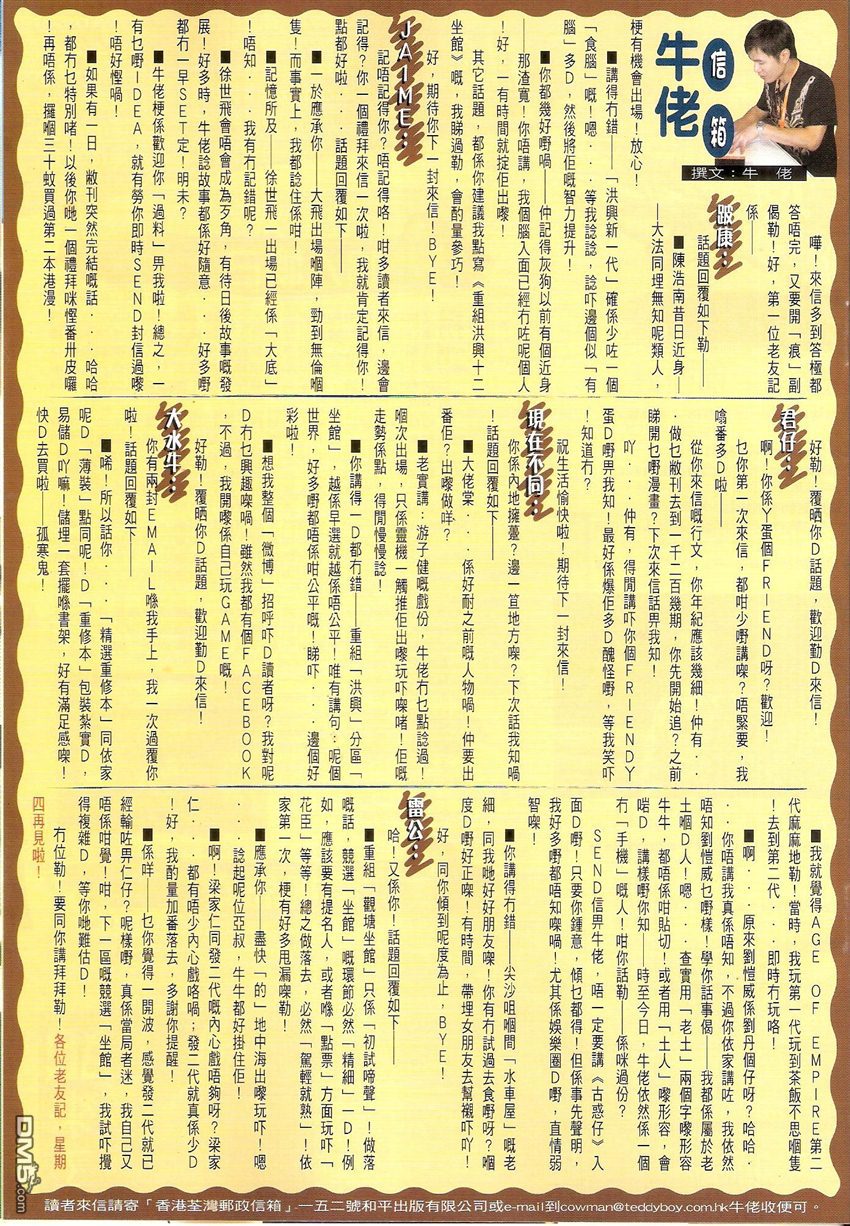 牛佬
信箱
撰文：牛　佬
嘩！來信多到答極都
答唔完，又要開「痕」副
偈勒！好，第一位老友記
係——
跛康：
話題回覆如下勒——
■陳浩南昔日近身——
—大法同埋無知呢類人，
梗有機會出場！放心！
■講得冇錯——「洪興新一代」確係少咗一個
「食腦」嘅！嗯．．．等我諗諗，諗吓邊個似「有
腦」多D，然後將佢嘅智力提升！
■你都幾好嘢喎——仲記得灰狗以前有個近身
——那渣寬！你唔講，我個腦入面已經冇咗呢個人
！好，一有時間就掟佢出嚟！
其它話題，都係你建議我點寫《重組洪興十二
坐館》嘅，我睇過勒，會酌量參巧！
好，期待你下一封來信！BYE！
JAIME：
記唔記得你？唔記得咯！咁多讀者來信，邊會
記得？你一個禮拜來信一次啦，我就肯定記得你！
點都好啦．．．話題回覆如下——
■一於應承你——大飛出場嗰陣，勁到無倫嗰
隻！而事實上，我都諗住係咁！
■記憶所及——徐世飛一出場已經係「大底」
！唔知．．．我有冇記錯呢？
■徐世飛會唔會成為歹角，有待日後故事嘅發
展！好多時，牛佬諗故事都係好隨意．．．好多嘢
都冇一早SET定！明未？
■牛佬梗係歡迎你「過料」畀我啦！總之，一
有乜嘢IDEA，就有勞你即時SEND封信過嚟
！唔好慳喎！
■如果有一日，敝刊突然完結嘅話．．．哈哈
，都冇乜特別啫！以後你哋一個禮拜咪慳番卅皮囉
！再唔係，攞嗰三十蚊買過第二本港漫！
好勒！覆晒你D話題，歡迎勤D來信！
君仔：
啊！你係丫蛋個FRIEND呀？歡迎！
乜你第一次來信，都咁少嘢講㗎？唔緊要，我
噏番多D啦——
從你來信嘅行文，你年紀應該幾細！仲有．．
．做乜敝刊去到一千二百幾期，你先開始追？之前
睇開乜嘢漫畫？下次來信話畀我知！
吖．．．仲有，得閒講吓你個FRIENDY
蛋D嘢畀我知！最好係爆佢多D醜怪嘢，等我笑吓
！知道冇？
祝生活愉快啦！期待下一封來信！
現在不同：
你係內地擁躉？邊一笪地方㗎？下次話我知喎
！話題回覆如下——
■大佬棠．．．係好耐之前嘅人物喎！仲要出
番佢？出嚟做咩？
■老實講：游子健嘅戲份，牛佬冇乜點諗過！
嗰次出場，只係靈機一觸推佢出嚟玩吓㗎啫！佢嘅
走勢係點，得閒慢慢諗！
■你講得一D都冇錯——重組「洪興」分區「
坐館」，越係早選就越係唔公平！唯有講句：呢個
世界，好多嘢都唔係咁公平嘅！睇吓．．．邊個好
彩啦！
■想我整個「微博」招呼吓D讀者呀？我對呢
D冇乜興趣㗎喎！雖然我都有個FACEBOOK
，不過，我開嚟係自己玩GAME嘅！
好勒！覆晒你D話題，歡迎勤D來信！
大水牛：
你有兩封EMAIL喺我手上，我一次過覆你
啦！話題回覆如下——
■唏！所以話你．．．「精選重修本」同依家
呢D「薄裝」點同呢！D「重修本」包裝紮實D，
易儲D吖嘛！儲埋一套擺喺書架，好有滿足感㗎！
快D去買啦——孤寒鬼！
■我就覺得AGE OF EMPIRE第二
代麻麻地勒！當時，我玩第一代玩到茶飯不思嗰隻
！去到第二代．．．即時冇玩咯！
■啊．．．原來劉愷威係劉丹個仔呀？哈哈．
．．你唔講我真係唔知，不過你依家講咗，我依然
唔知劉愷威乜嘢樣！學你話事偈——我都係屬於老
土嗰D人！嗯．．．查實用「老土」兩個字嚟形容
牛牛，都唔係咁貼切！或者用「土人」嚟形容，會
啱D，講樣嘢你知——時至今日，牛佬依然係一個
冇「手機」嘅人！咁你話勒——係咪過份？
SEND信畀牛佬，唔一定要講《古惑仔》入
面D嘢！只要你鍾意，傾乜都得！但係事先聲明，
我好多嘢都唔知㗎喎！尤其係娛樂圈D嘢，直情弱
智㗎！
■你講得冇錯——尖沙咀嗰間「水車屋」嘅老
細，同我哋好好朋友㗎！你有冇試過去食嘢呀？嗰
度D嘢好正㗎！有時間，帶埋女朋友去幫襯吓吖！
好，同你傾到呢度為止，BYE！
雷公：
哈！又係你！話題回覆如下——
■重組「觀塘坐館」只係「初試啼聲」！做落
嘅話，競選「坐館」嘅環節必然「精細」一D！例
如，應該要有提名人，或者喺「點票」方面玩吓「
花臣」等等！總之做落去，必然「駕輕就熟」！依
家第一次，梗有好多甩漏㗎勒！
■應承你——盡快「的」地中海出嚟玩吓！嗯
．．．諗起呢位亞叔，牛牛都好掛住佢！
■啊！梁家仁同發二代嘅內心戲唔夠呀？梁家
仁．．．都有唔少內心戲咯喎；發二代就真係少D
！好，我酌量加番落去，多謝你提醒！
■係咩——乜你覺得一開波，感覺發二代就已
經輸咗畀仁仔？呢樣嘢，真係當局者迷，我自己又
唔係咁覺！咁，下一區嘅競選「坐館」，我試吓攪
得複雜D，等你哋難估D！
冇位勒！要同你講拜拜勒！各位老友記，星期
四再見啦！
讀者來信請寄「香港荃灣郵政信箱」一五二號和平出版有限公司或e-mail到cowman@teddyboy.com.hk牛佬收便可。
DM5.com